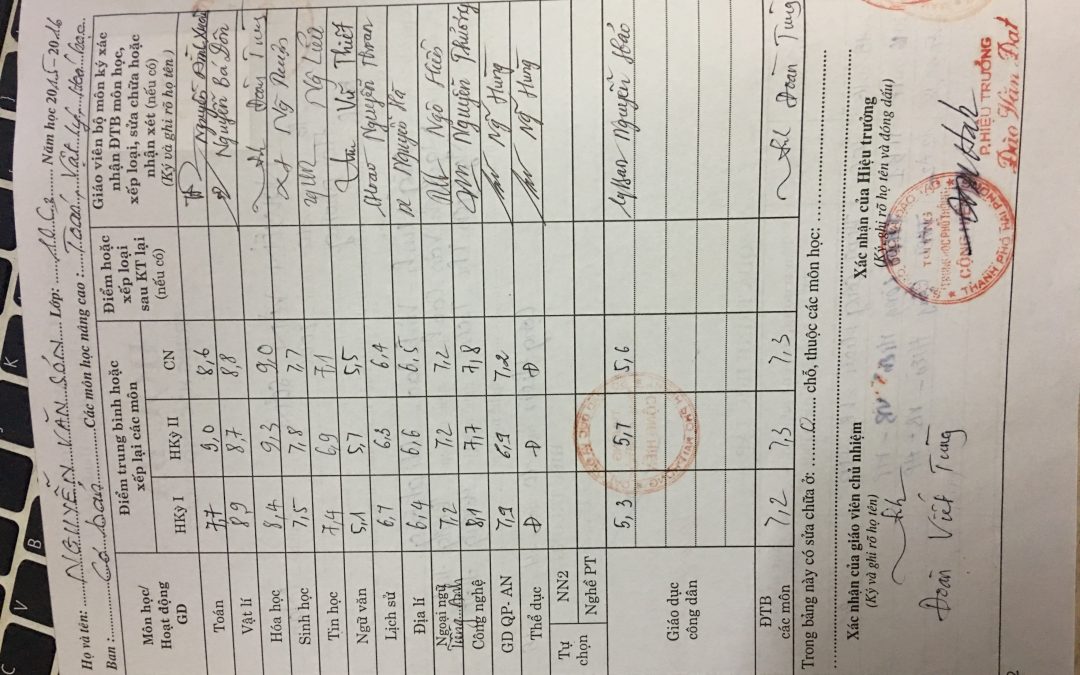 Họ và tên: NGUYỄN VĂN SÁN Lớp: Năm học 2015-2016
Ban: Cơ bản Các môn học nâng cao: Toán, Vật lý, Hóa học
Môn học/ Hoạt động GD
Điểm trung bình hoặc xếp lại các môn
Điểm hoặc xếp loại sau KT lại (nếu có)
Giáo viên bộ môn ký xác nhận ĐTB môn học, xếp loại, sửa chữa hoặc nhận xét (nếu có) (Ký và ghi rõ họ tên)
HKỳ I HKỳ II CN
Toán 7,7 9,0 8,6 Nguyễn Đình
Vật lí 8,9 8,7 8,8 Nguyễn Bá Đôn
Hóa học 8,4 9,3 9,0 Đoàn Tùng
Sinh học 7,5 7,8 7,7
Tin học 7,4 6,9 7,1
Ngữ văn 5,1 5,7 5,5 Vũ Thiết
Lịch sử 6,7 6,3 6,4 Nguyễn
Địa lí 6,4 6,6 6,5 Nguyễn Hà
Ngoại ngữ Tiếng Anh 7,2 7,2 7,2 Ngô Hiền
Công nghệ 8,1 7,7 7,8 Nguyễn Phương
GD QP- AN 7,9 6,9 7,2 Ng Hùng
Thể dục Đ Đ Đ Ng Hùng
Tự chọn NN2
Nghề PT
Giáo dục công dân 5,3 5,7 5,6 Nguyễn Hảo
ĐTB các môn 7,2 7,3 7,3 Đoàn Tùng
Trong bảng này có sửa chữa ở: 0 chỗ, thuộc các môn học:
Xác nhận của giáo viên chủ nhiệm
(Ký và ghi rõ họ tên)
Đoàn Viết Tùng
Xác nhận của Hiệu trưởng
(Ký, ghi rõ họ tên và đóng dấu)
TRƯỜNG
TRUNG HỌC PHỔ THÔNG
CỘNG HIỀN
THÀNH PHỐ HẢI PHÒNG
P.HIỆU TRƯỞNG
Đào Văn Đạt
2